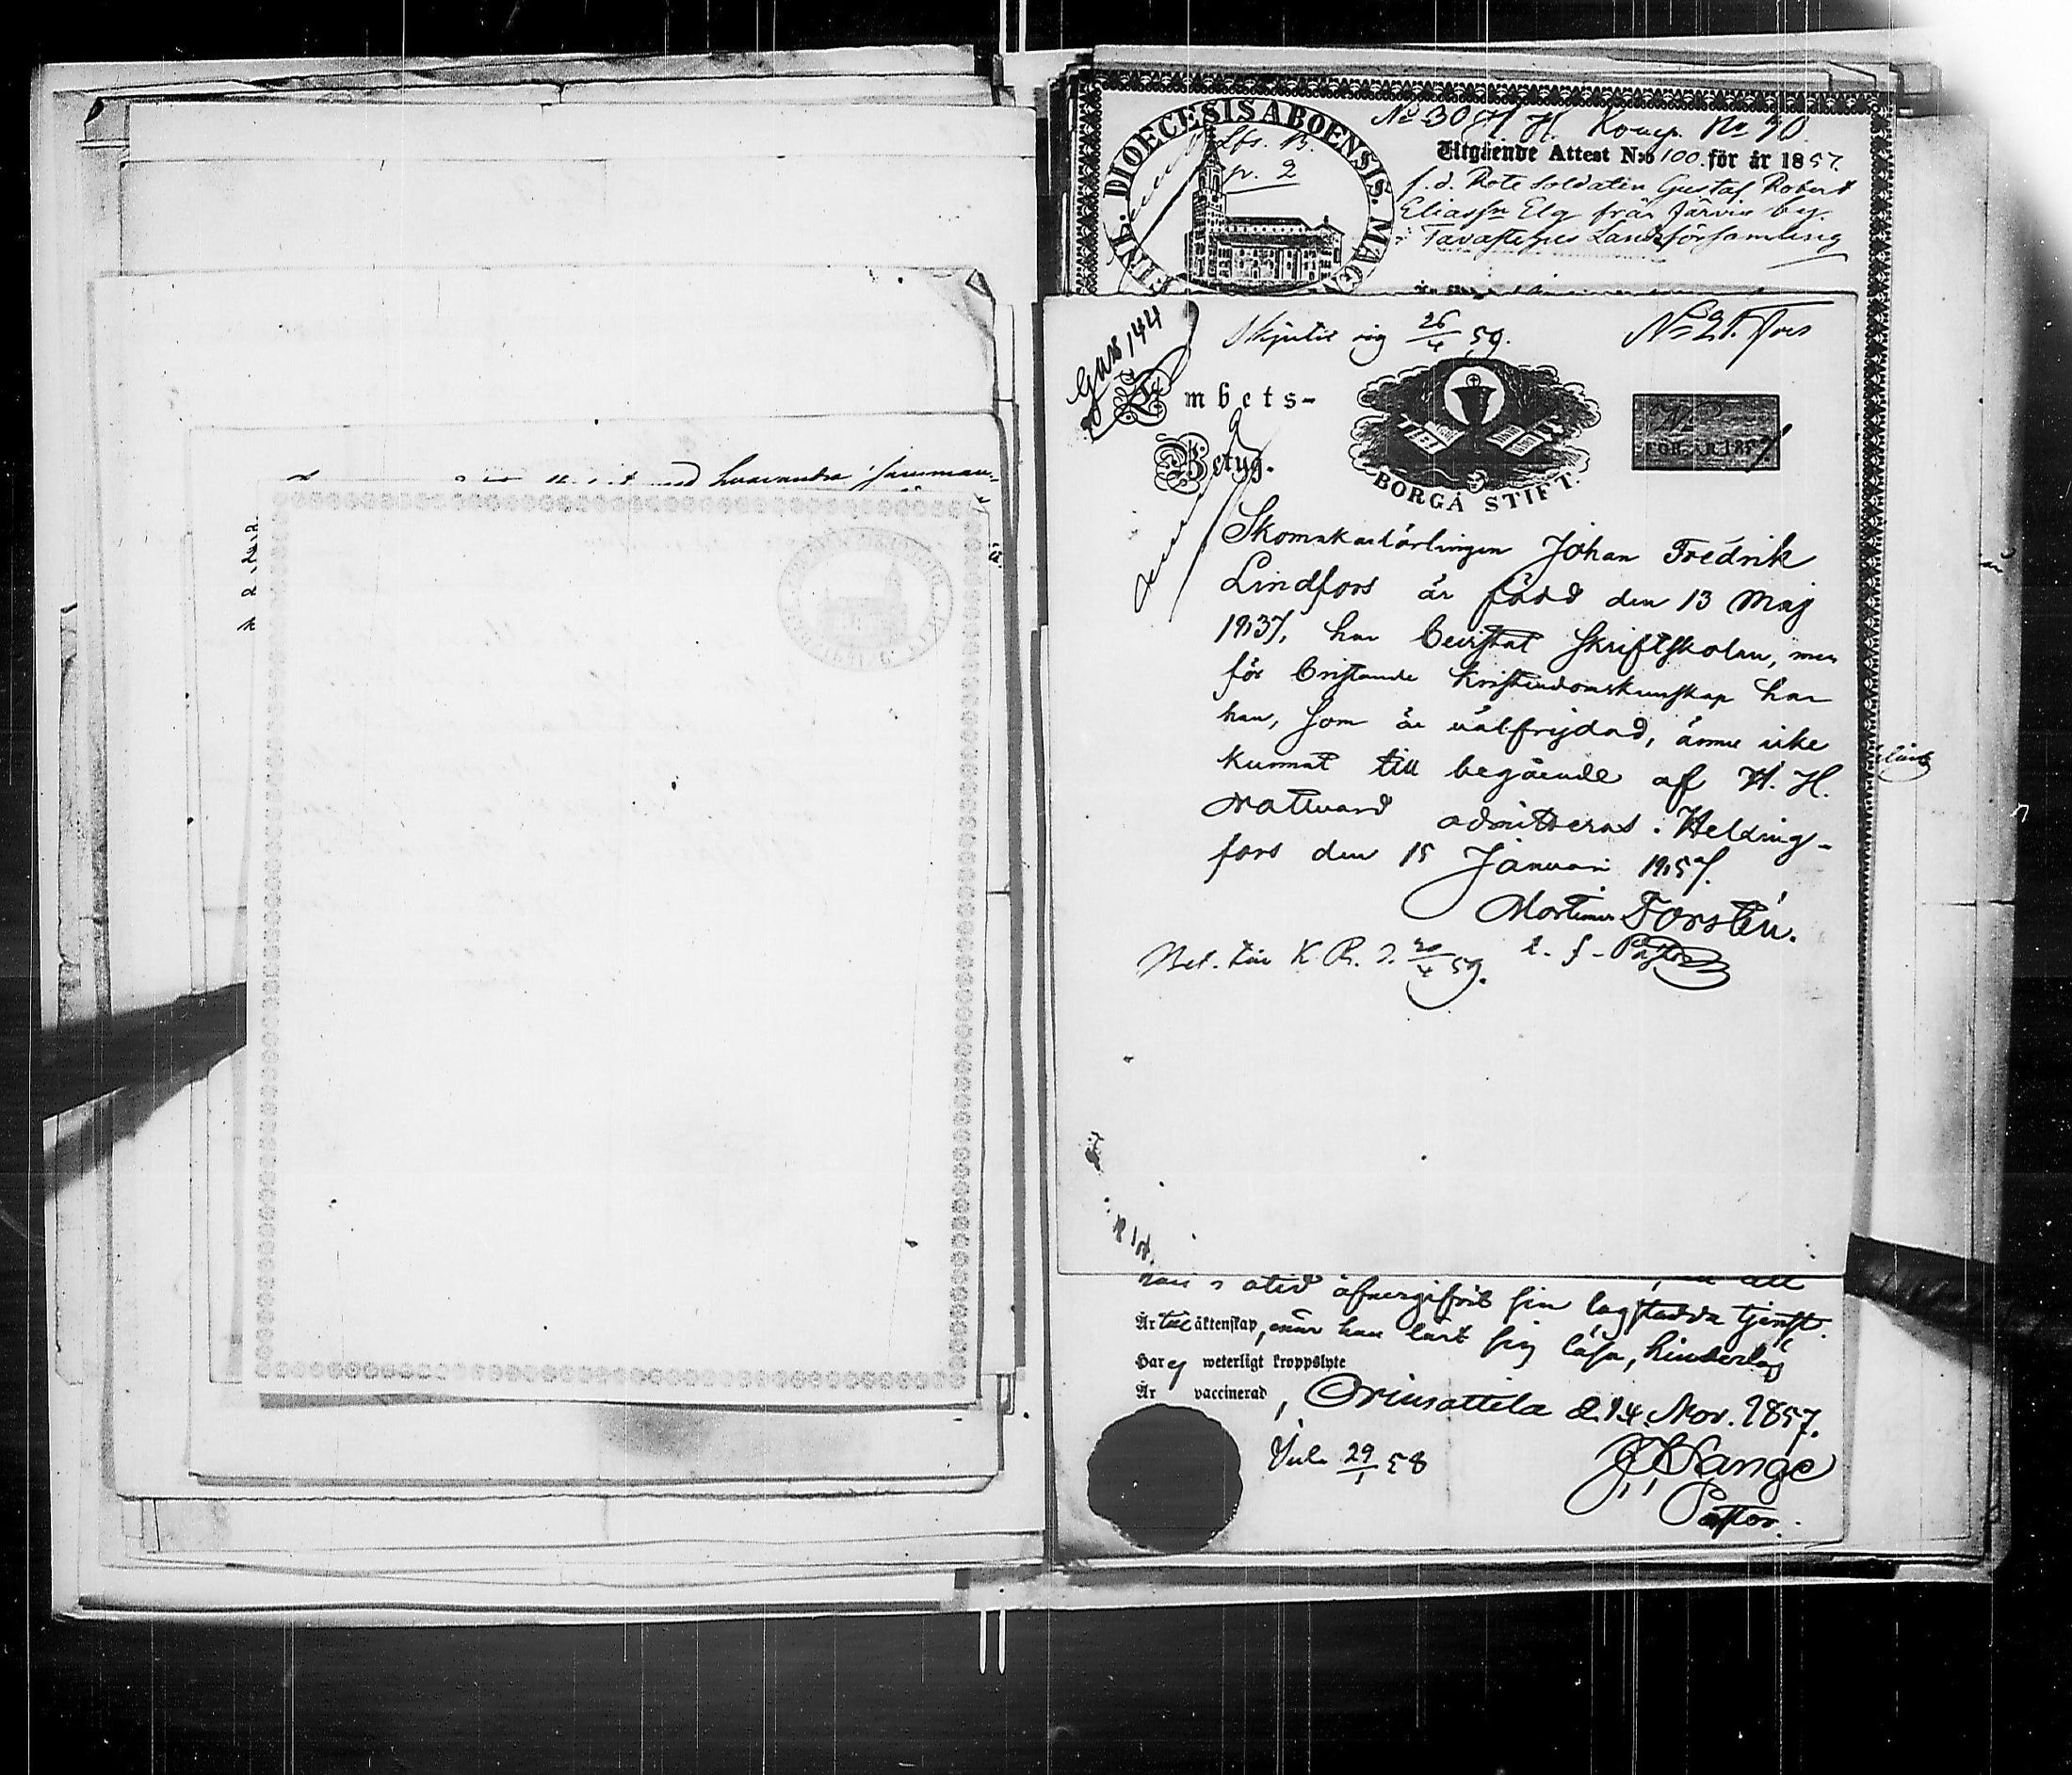 hvarandra
DIOECESIS ABOENSIS. MAG
Lbs. B.
p. 2
No 30 H H. Komp. No 70
Utgående Attest N:o 100. för år 1857.
f. d. Rote Soldaten Gustaf Robert
Eliasson Elg från Järvis by.
i Tavastehus Landsförsamling
Skjutit sig 26/4 59.
No 21. Fors
Gus 144
Embets-
Betyg.
BORGÅ STIFT.
No 2
FÖR ÅR 1857.
Skomakarlärlingen Johan Fredrik
Lindfors är född den 13 Maj
1837, har bevistat Skriftskolan, men
för bristande kristendomskunskap har
han, som är välfrejdad, ännu icke
kunnat till begående af H. H.
Nattvard admitteras. Helsing-
fors den 15 Januari 1857.
Mortimer Forstén.
t. f. Pastor
Bet. till K. R. d. 20/4 59.
sin lagstadda tjenst.
Är till äktenskap, när han lärt sig läsa, hinderlös
Har ej weterligt kroppslyte
Är vaccinerad, Orimattila d. 14. Nov. 1857.
29/1 58
Lange
Pastor.